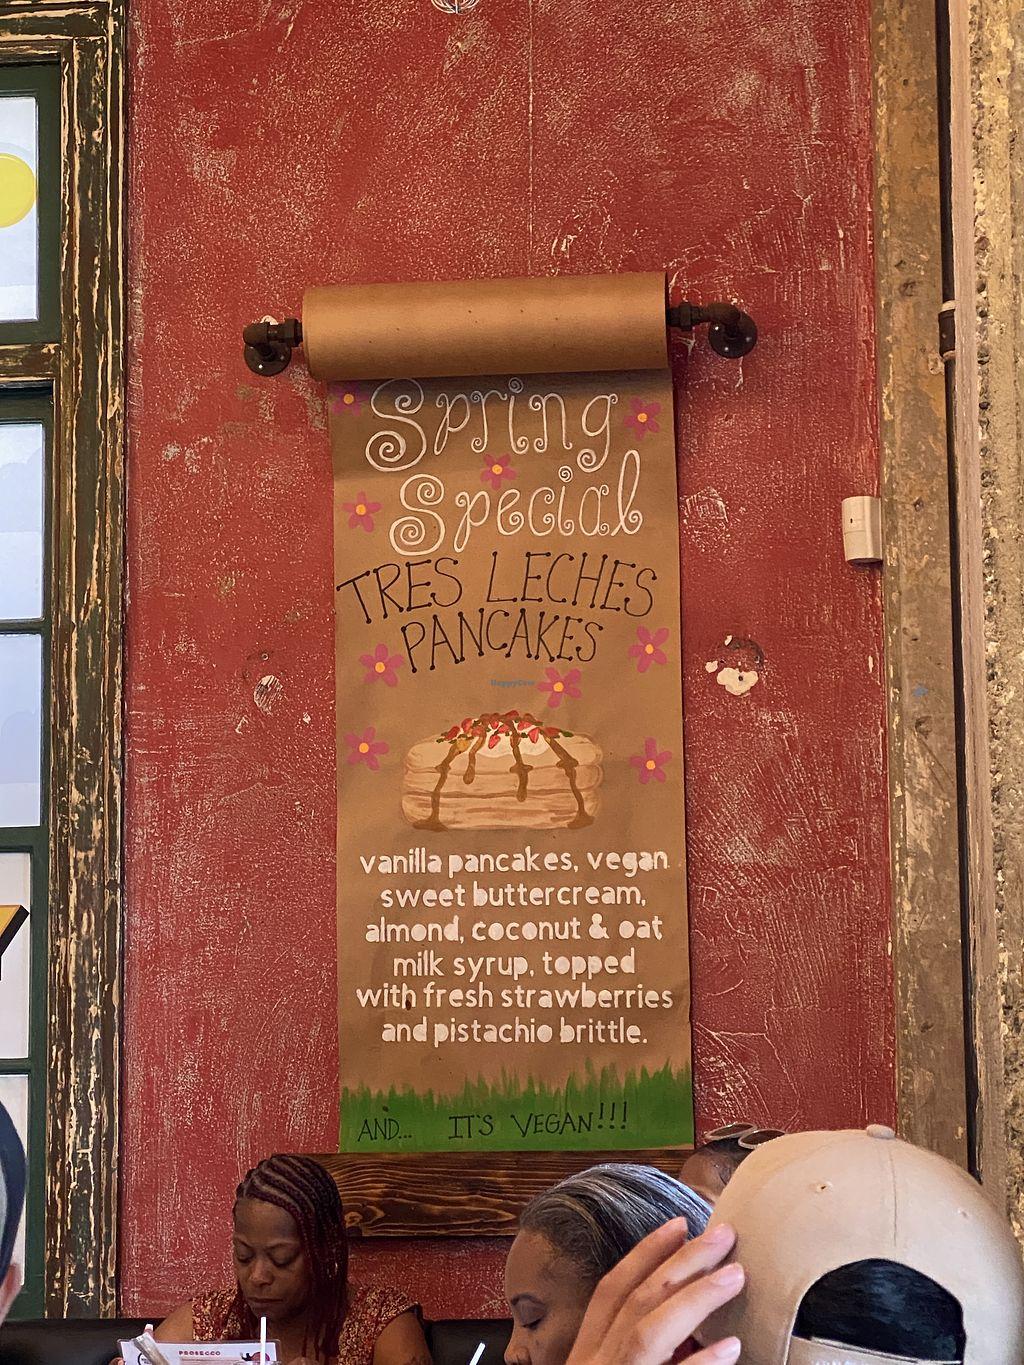 Spring
Special
TRES LECHES
PANCAKES
HappyCow
vanilla pancakes, vegan
sweet buttercream,
almond, coconut & oat
milk syrup, topped
with fresh strawberries
and pistachio brittle.
AND... IT'S VEGAN!!!
Y
PROSECCO